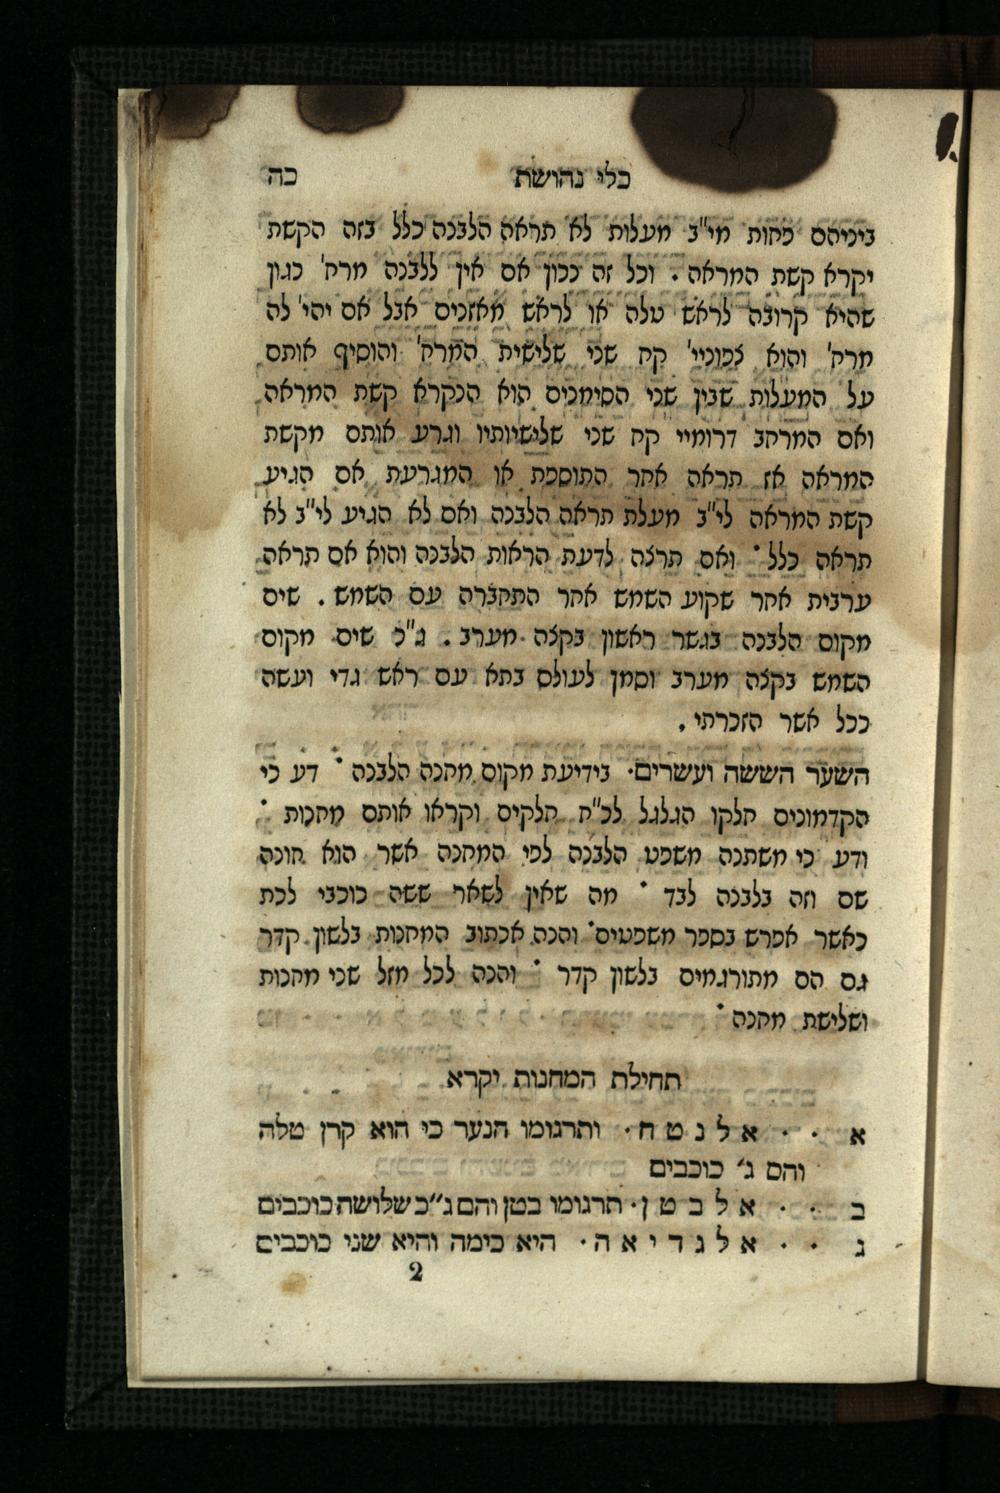 כלי נחושת כה
ביניהם פחות מי"ב מעלות לא תראה הלבנה כלל בזה הקשת
יקרא קשת המראה. וכל זה נכון אם אין ללבנה מרח' כגון
שהיא קרובה לראש טלה או לראש מאזנים אבל אם יהי' לה
מרח' והוא צפוניי' קח שני שלישית המרח' והוסיף אותם
על המעלות שבין שני הסימנים הוא הנקרא קשת המראה
ואם המרחב דרומיי קח שני שלישיותיו וגרע אותם מקשת
המראה אז תראה אחר התוספת או המגרעת אם הגיע
קשת המראה לי"ב מעלת תראה הלבנה ואם לא הגיע לי"ב לא
תראה כלל· ואם תרצה לדעת הראות הלבנה והוא אם תראה
ערבית אחר שקוע השמש אחר התחברה עם השמש. שים
מקום הלבנה בגשר ראשון בקצה מערב. ג"כ שים מקום
השמש בקצה מערב וסמן לעולם בתא עם ראש גדי ועשה
ככל אשר הזכרתי.
השער הששה ועשרים· בידיעת מקום מחנה הלבנה· דע כי
הקדמונים חלקו הגלגל לכ"ח חלקים וקראו אותם מחנות·
ודע כי משתנה משפט הלבנה לפי המחנה אשר הוא חונה
שם וזה בלבנה לבד· מה שאין לשאר ששה כוכבי לכת
כאשר אפרש בספר משפטים· והנה אכתוב המחנות בלשון קדר
גם הם מתורגמים בלשון קדר· והנה לכל מזל שני מחנות
ושלישת מחנה·
תחילת המחנות יקרא
א · · אלנטח· ותרגומו הנער כי הוא קרן טלה
והם ג' כוכבים
ב · · אלבטן· תרגומו בטן והם ג"כ שלושה כוכבים
ג · · אלגדיאה· היא כימה והיא שני כוכבים
2